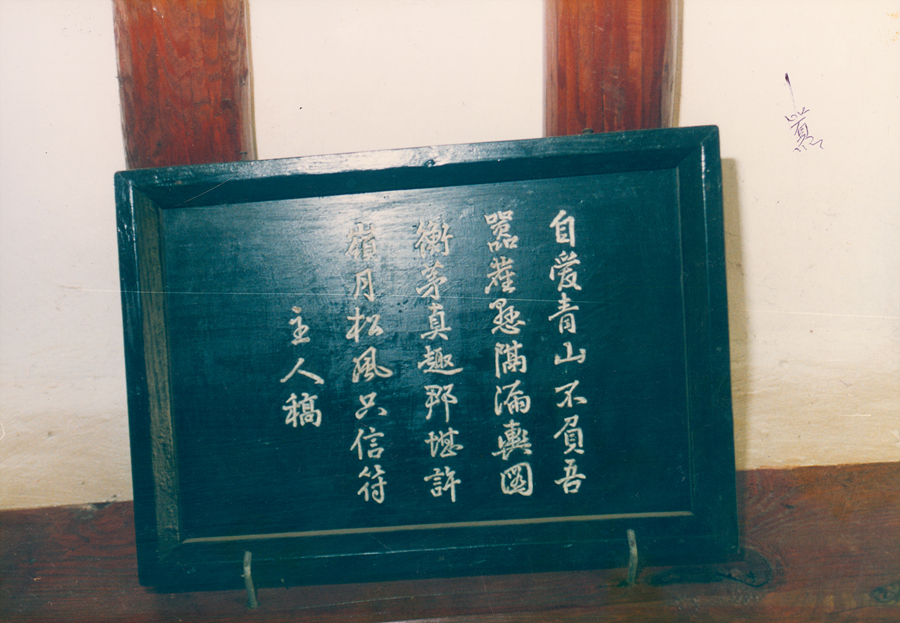 自愛青山不負吾
囂塵懸隔漏輿圖
衡茅真趣那堪許
嶺月松風只信符
主人稿